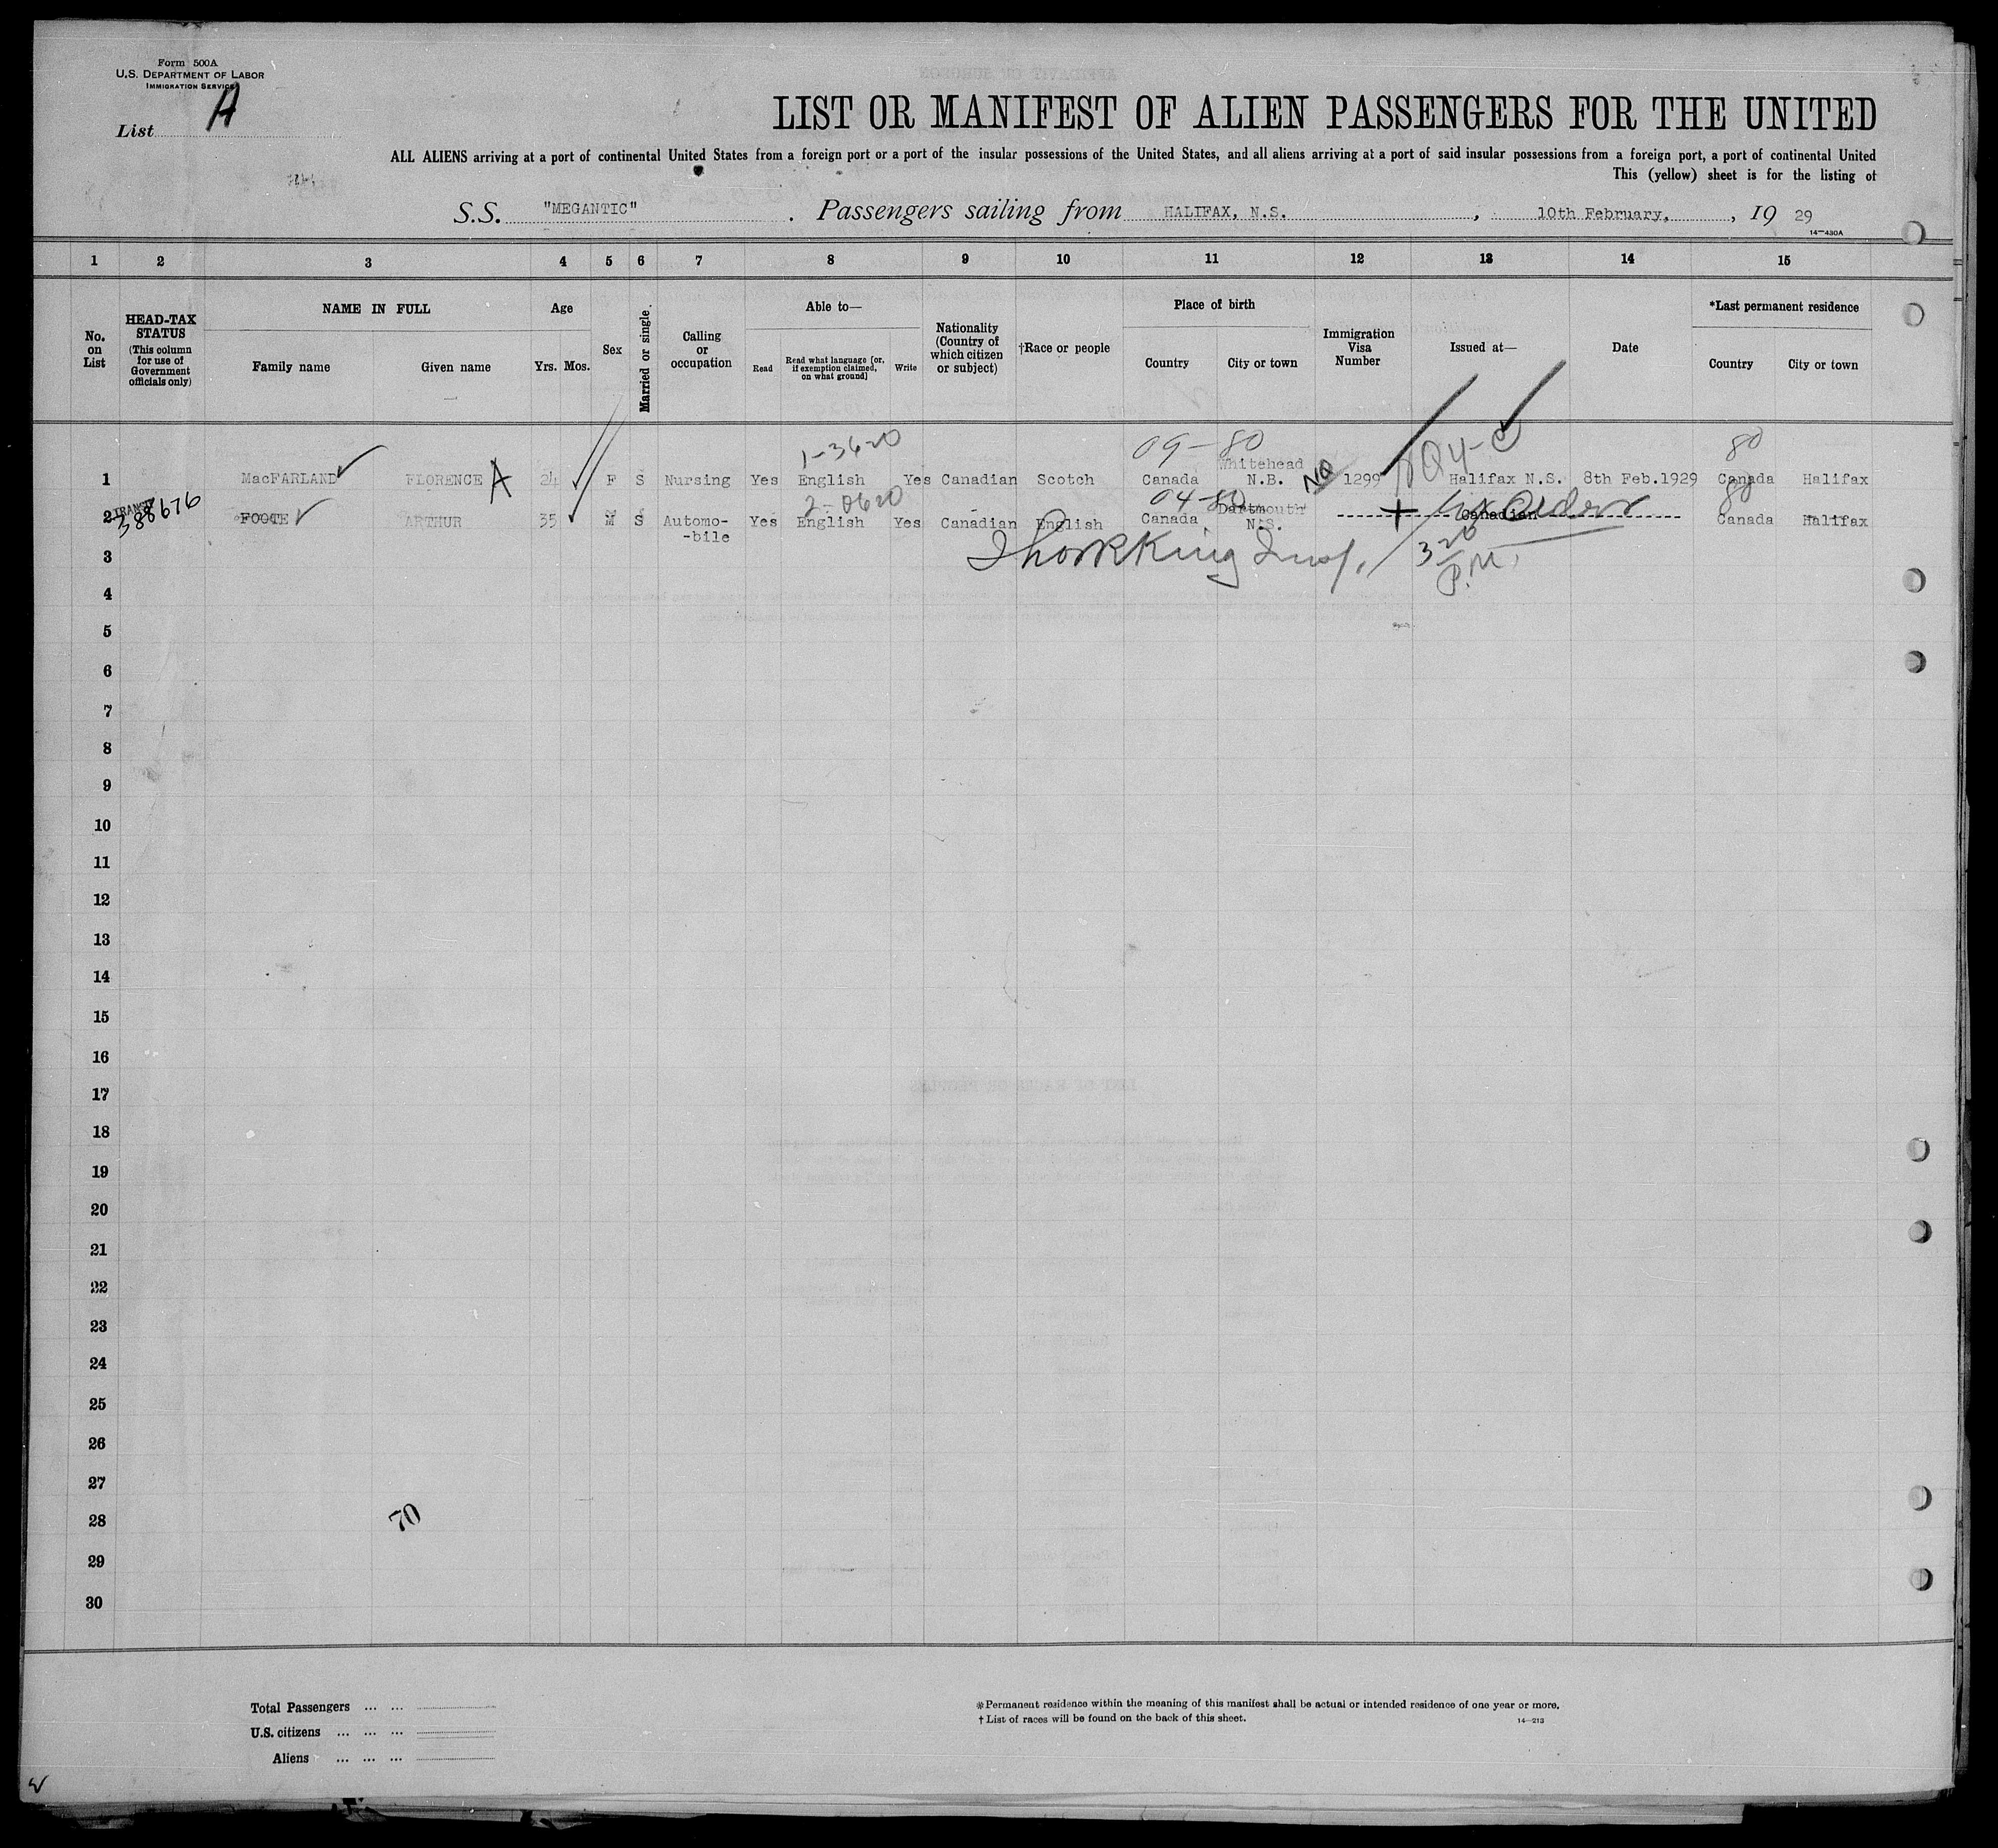 Form 500A
U.S. DEPARTMENT OF LABOR
IMMIGRATION SERVICE
List A
LIST OR MANIFEST OF ALIEN PASSENGERS FOR THE UNITED
ALL ALIENS arriving at a port of continental United States from a foreign port or a port of the insular possessions of the United States, and all aliens arriving at a port of said insular possessions from a foreign port, a port of continental United
This (yellow) sheet is for the listing of
S.S. "MEGANTIC" . Passengers sailing from HALIFAX, N.S. , 10th February, , 19 29
14—430A
1 2 3 4 5 6 7 8 9 10 11 12 13 14 15
No. on List
HEAD-TAX STATUS
(This column for use of Government officials only)
NAME IN FULL
Family name Given name
Age
Yrs. Mos.
Sex
Married or single.
Calling or occupation
Able to—
Read
Read what language [or, if exemption claimed, on what ground]
Write
Nationality (Country of which citizen or subject)
†Race or people
Place of birth
Country City or town
Immigration Visa Number
Issued at—
Date
*Last permanent residence
Country City or town
1-3620 09-80 80
1 MacFARLAND FLORENCE A 24 F S Nursing Yes English Yes Canadian Scotch Canada Whitehead N.B. NQ 1299 Halifax N.S. 8th Feb.1929 Canada Halifax
TRANSIT 388676 2-0620 04-80 80
2 FOOTE ARTHUR 35 M S Automo- -bile Yes English Yes Canadian English Canada Dartmouth N.S. + Canadian Canada Halifax
3 King Insp. 320 P.M.
4
5
6
7
8
9
10
11
12
13
14
15
16
17
18
19
20
21
22
23
24
25
26
27
28
29
30
70
Total Passengers ... ...
U.S. citizens ... ... ...
Aliens ... ... ...
*Permanent residence within the meaning of this manifest shall be actual or intended residence of one year or more.
† List of races will be found on the back of this sheet.
14—213